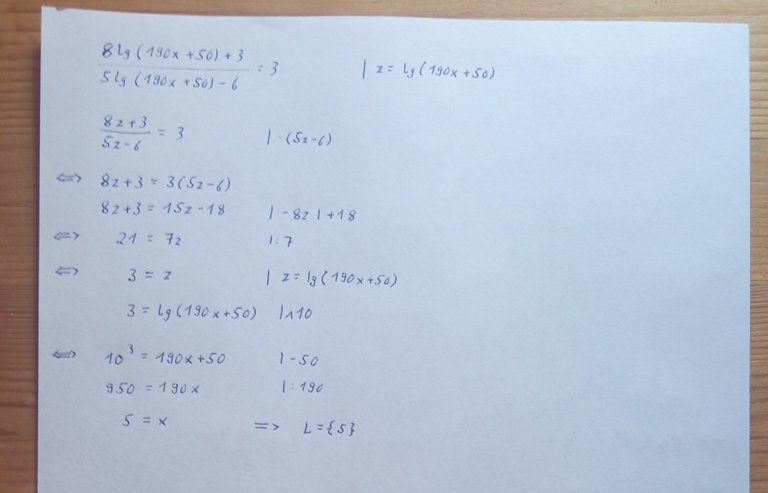 8 lg (190x + 50) + 3 / 5 lg (190x + 50) - 6 = 3 | z = lg (190x + 50)
8z + 3 / 5z - 6 = 3 | · (5z - 6)
<=> 8z + 3 = 3 (5z - 6)
8z + 3 = 15z - 18 | - 8z | + 18
<=> 21 = 7z | : 7
<=> 3 = z | z = lg (190x + 50)
3 = lg (190x + 50) | ^ 10
<=> 10³ = 190x + 50 | - 50
950 = 190x | : 190
5 = x => L = {5}